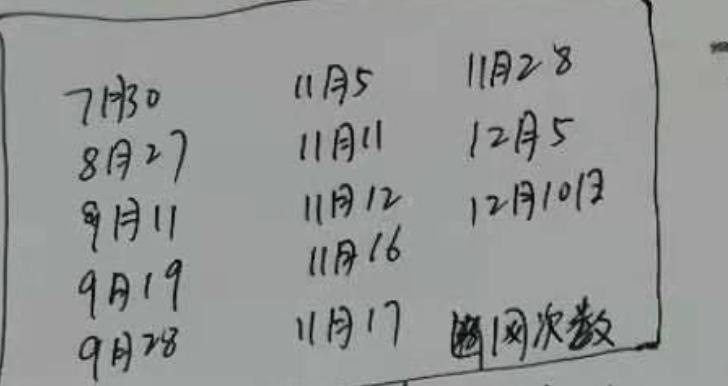 7月30
8月27
9月11
9月19
9月28
11月5
11月11
11月12
11月16
11月17
11月28
12月5
12月10日
网次数